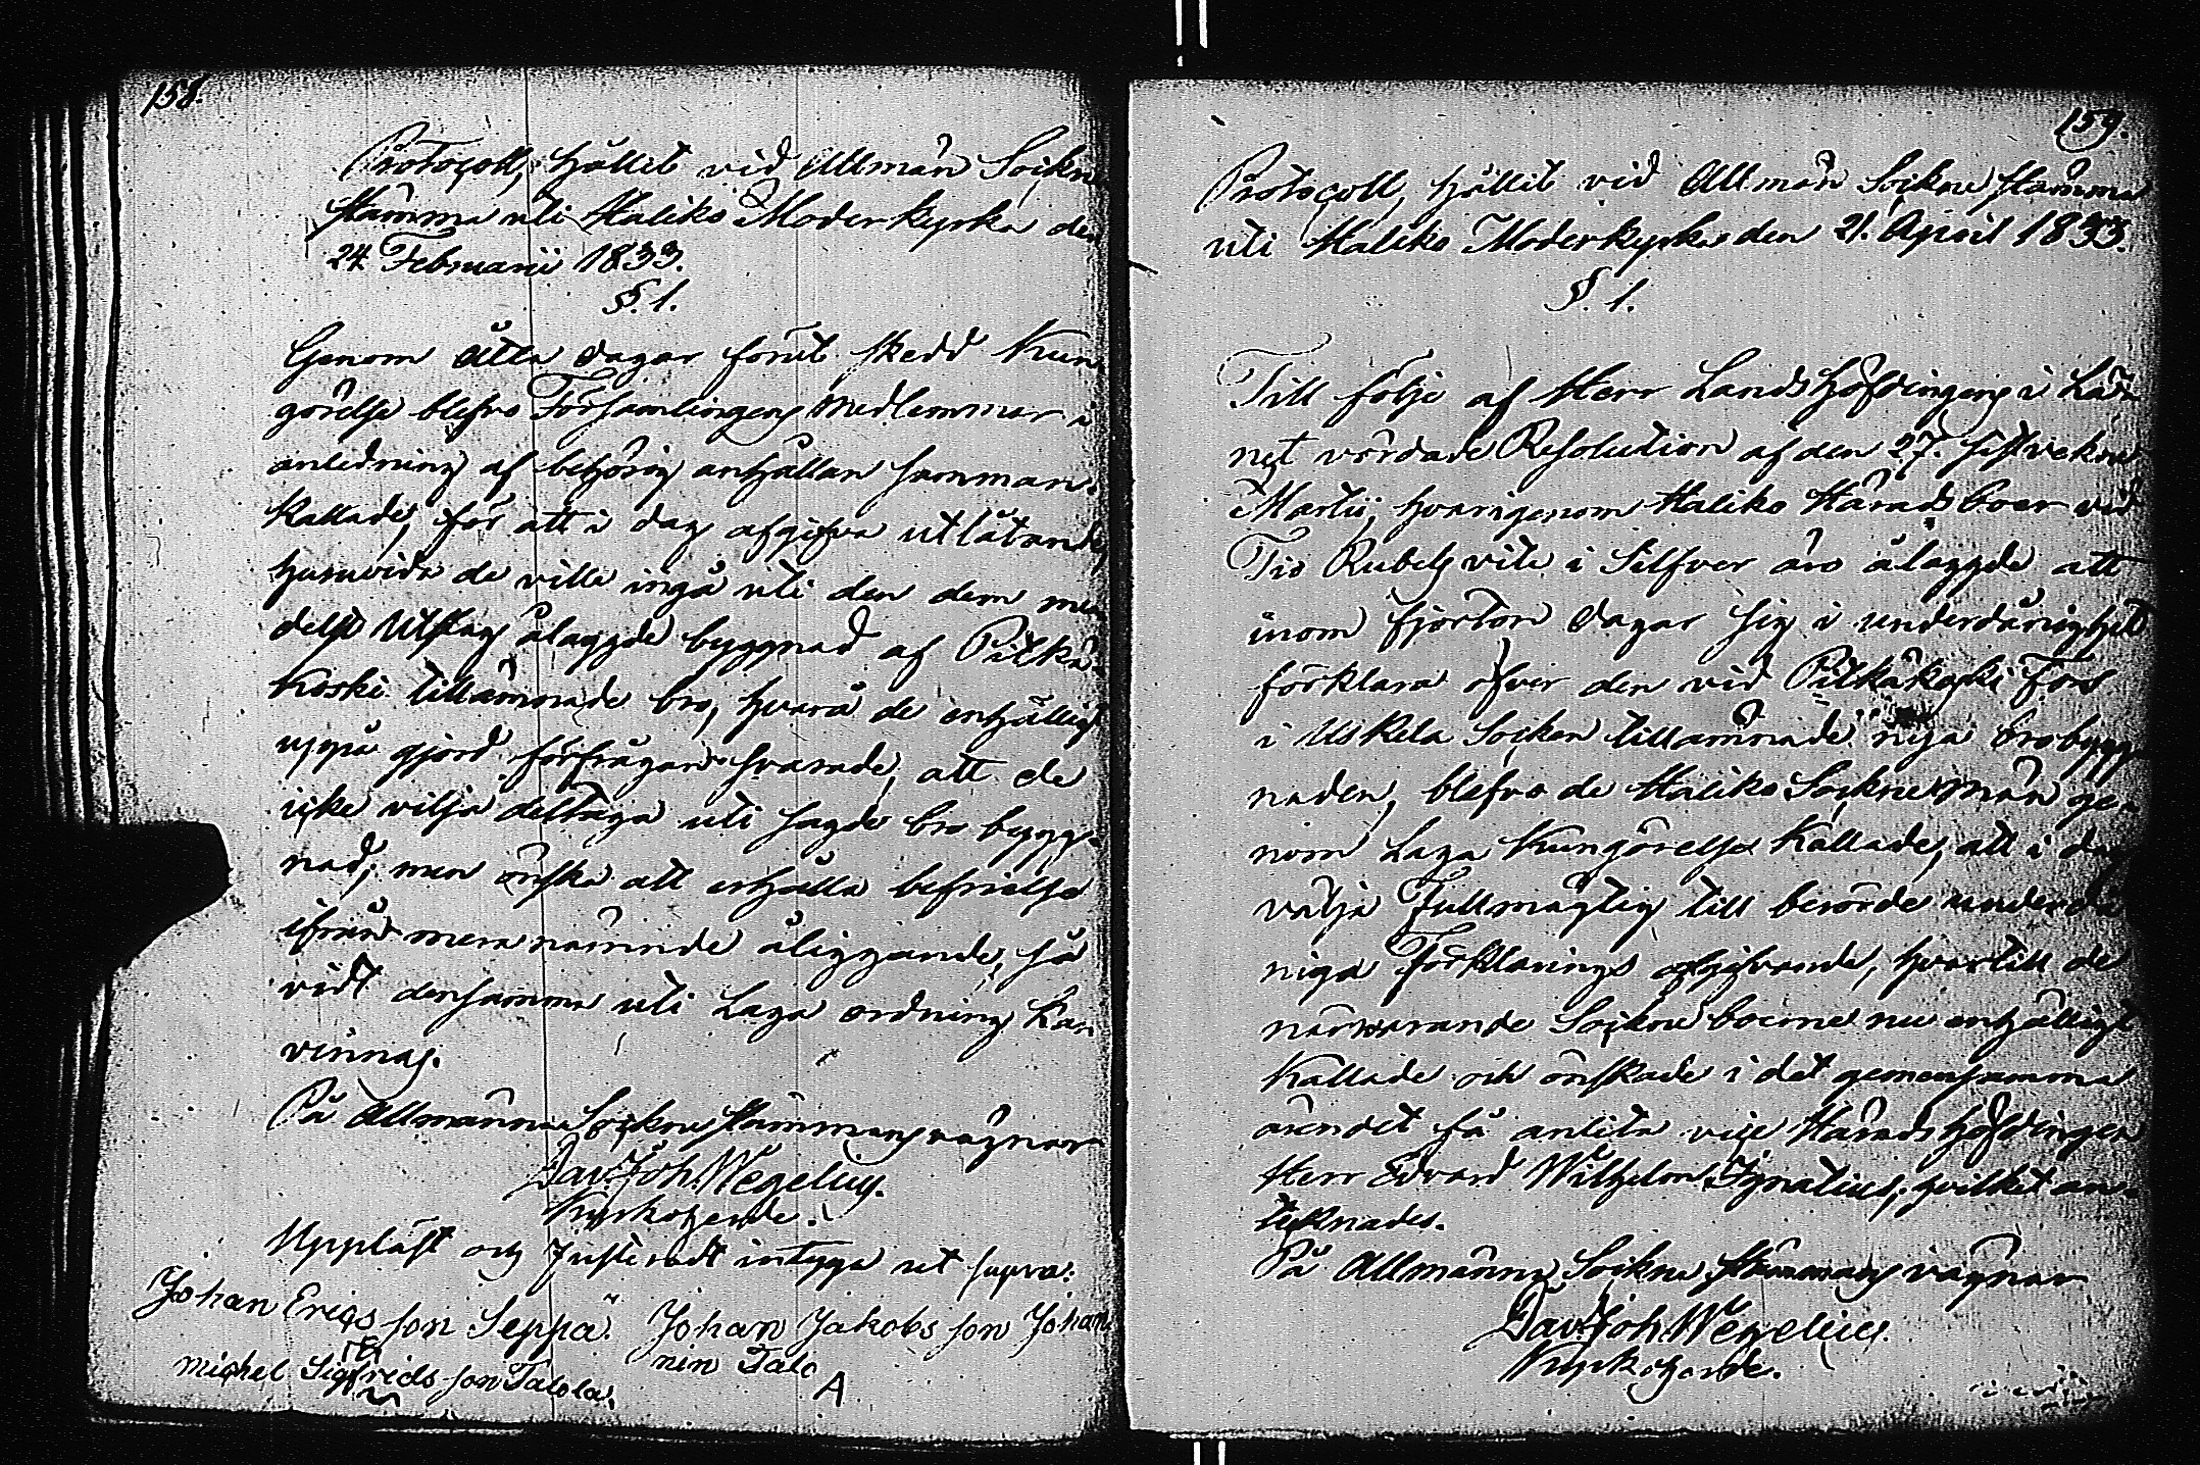 158.
Protocoll, hållit vid Allmän Sockne
Stämma uti Haliko Moderkyrka den
24 Februarii 1833.
§. 1.
Genom åtta dagar förut skedd Kun
görelse blefvo Församlingens medlemmar i
anledning af behörig anhållan samman-
kallade, för att i dag afgifva utlåtande,
huruvida de ville ingå uti den dem me
delst Utslag ålaggde byggnad af Pitkä-
koski tillämnade bro, hvarå de enhälligt
uppå gjord förfrågan svarade, att de
icke vilja deltaga uti sagde bro bygg-
nad; men önska att erhålla befrielse
ifrån mera nämnde åliggande, så
vidt densamma uti Laga ordning kan
vinnas.
På Allmänna Sockne Stämmans vägnar
Dav. Joh. Wegelius.
Kyrkoherde.
Uppläst och Justeradt intyga ut supra:
Johan Ericsson Seppä. Johan Jakobsson Johan
nin Talo
Michel Sigfredsson Talola.
A
159.
Protocoll, hållit vid Allmän Sockne Stämma
uti Haliko Moderkyrka den 21. April 1833.
§. 1.
Till följe af Herr Landshöfdingens i Lä
net vördade Resolution af den 27. sistvekne
Martii, hvarigenom Haliko Häradsboer vid
Tio Rubels vite i Silfver äro ålaggde att
inom fjorton dagar sig i underdånighet
förklara öfver den vid Pitkäkoski Fors
i Uskela Socken tillämnade nya brobygg
naden, blefvo de Haliko Sockne män ge-
nom Laga Kungörelse kallade, att i dag
välja Fullmägtig till berörde underdå
niga Förklarings afgifvande, hvartill de
närwarande Sockneboerne nu enhälligt
kallade och önskade i det gemensamma
ärendet få anlita vice Häradshöfdingen
Herr Edvard Wilhelm Ignatius; hvilket an-
teknades.
På Allmänna Sockne Stämmans vägnar
Dav. Joh. Wegelius.
Kyrkoherde.